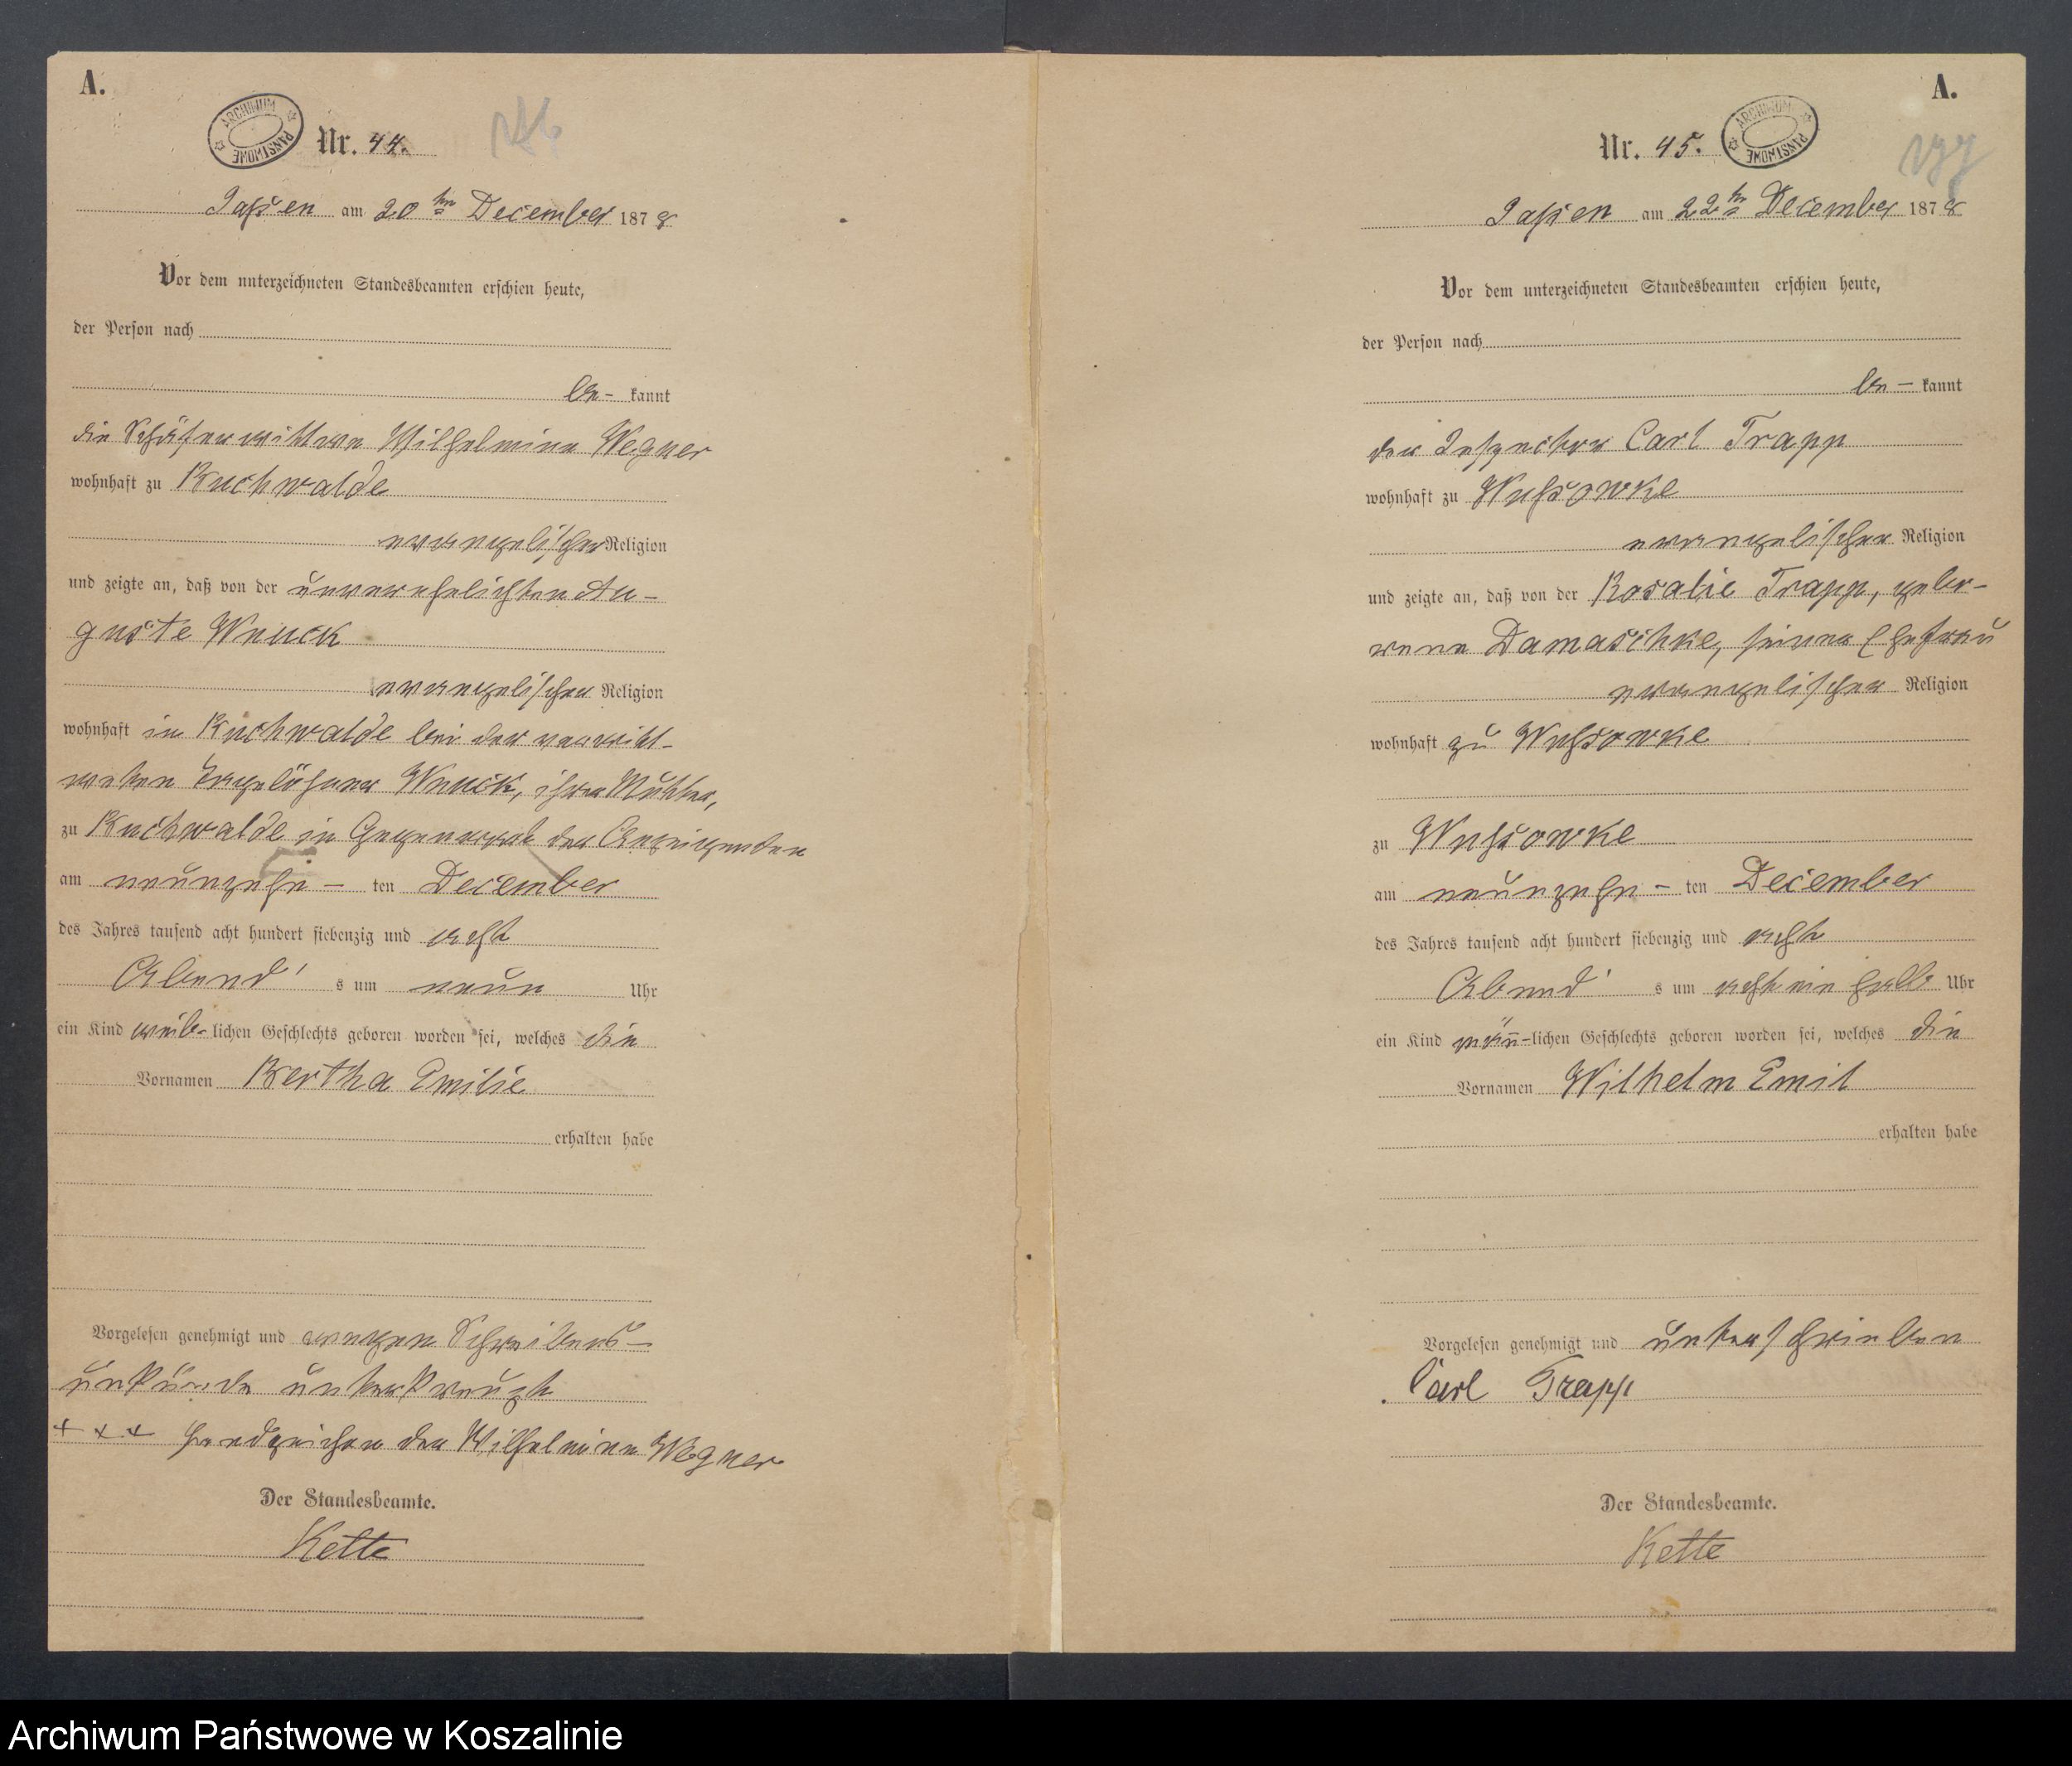 A.
ARCHIWUM PAŃSTWOWE
Nr. 44.
Jassen am 20ten December 1878
Vor dem unterzeichneten Standesbeamten erschien heute,
der Person nach
be- kannt
die Schäferwittwe Wilhelmine Wegner
wohnhaft zu Buchwalde
evangelischer Religion
und zeigte an, daß von der unverehelichten Au-
guste Wnuck
evangelischer Religion
wohnhaft in Buchwalde bei der verwitt-
weten Tagelöhner Wnuck, ihrer Mutter,
zu Buchwalde in Gegenwart der Anzeigenden
am neunzehn- ten December
des Jahres tausend acht hundert siebenzig und acht
Abend' s um neun Uhr
ein Kind weib- lichen Geschlechts geboren worden sei, welches die
Vornamen Bertha Emilie
erhalten habe
Vorgelesen genehmigt und wegen Schreibens-
unkunde unterkreuzt
+ + + Handzeichen der Wilhelmine Wegner
Der Standesbeamte.
Kette
A.
Nr. 45.
ARCHIWUM PAŃSTWOWE
Jassen am 22ten December 1878
Vor dem unterzeichneten Standesbeamten erschien heute,
der Person nach
be- kannt
der Inspector Carl Trapp
wohnhaft zu Wussowke
evangelischer Religion
und zeigte an, daß von der Rosalie Trapp, gebo-
rene Damaschke, seiner Ehefrau
evangelischer Religion
wohnhaft zu Wussowke
zu Wussowke
am neunzehn- ten December
des Jahres tausend acht hundert siebenzig und acht
Abend' s um acht ein halb Uhr
ein Kind männ-lichen Geschlechts geboren worden sei, welches die
Vornamen Wilhelm Emil
erhalten habe
Vorgelesen genehmigt und unterschrieben
Carl Trapp
Der Standesbeamte.
Kette
Archiwum Państwowe w Koszalinie